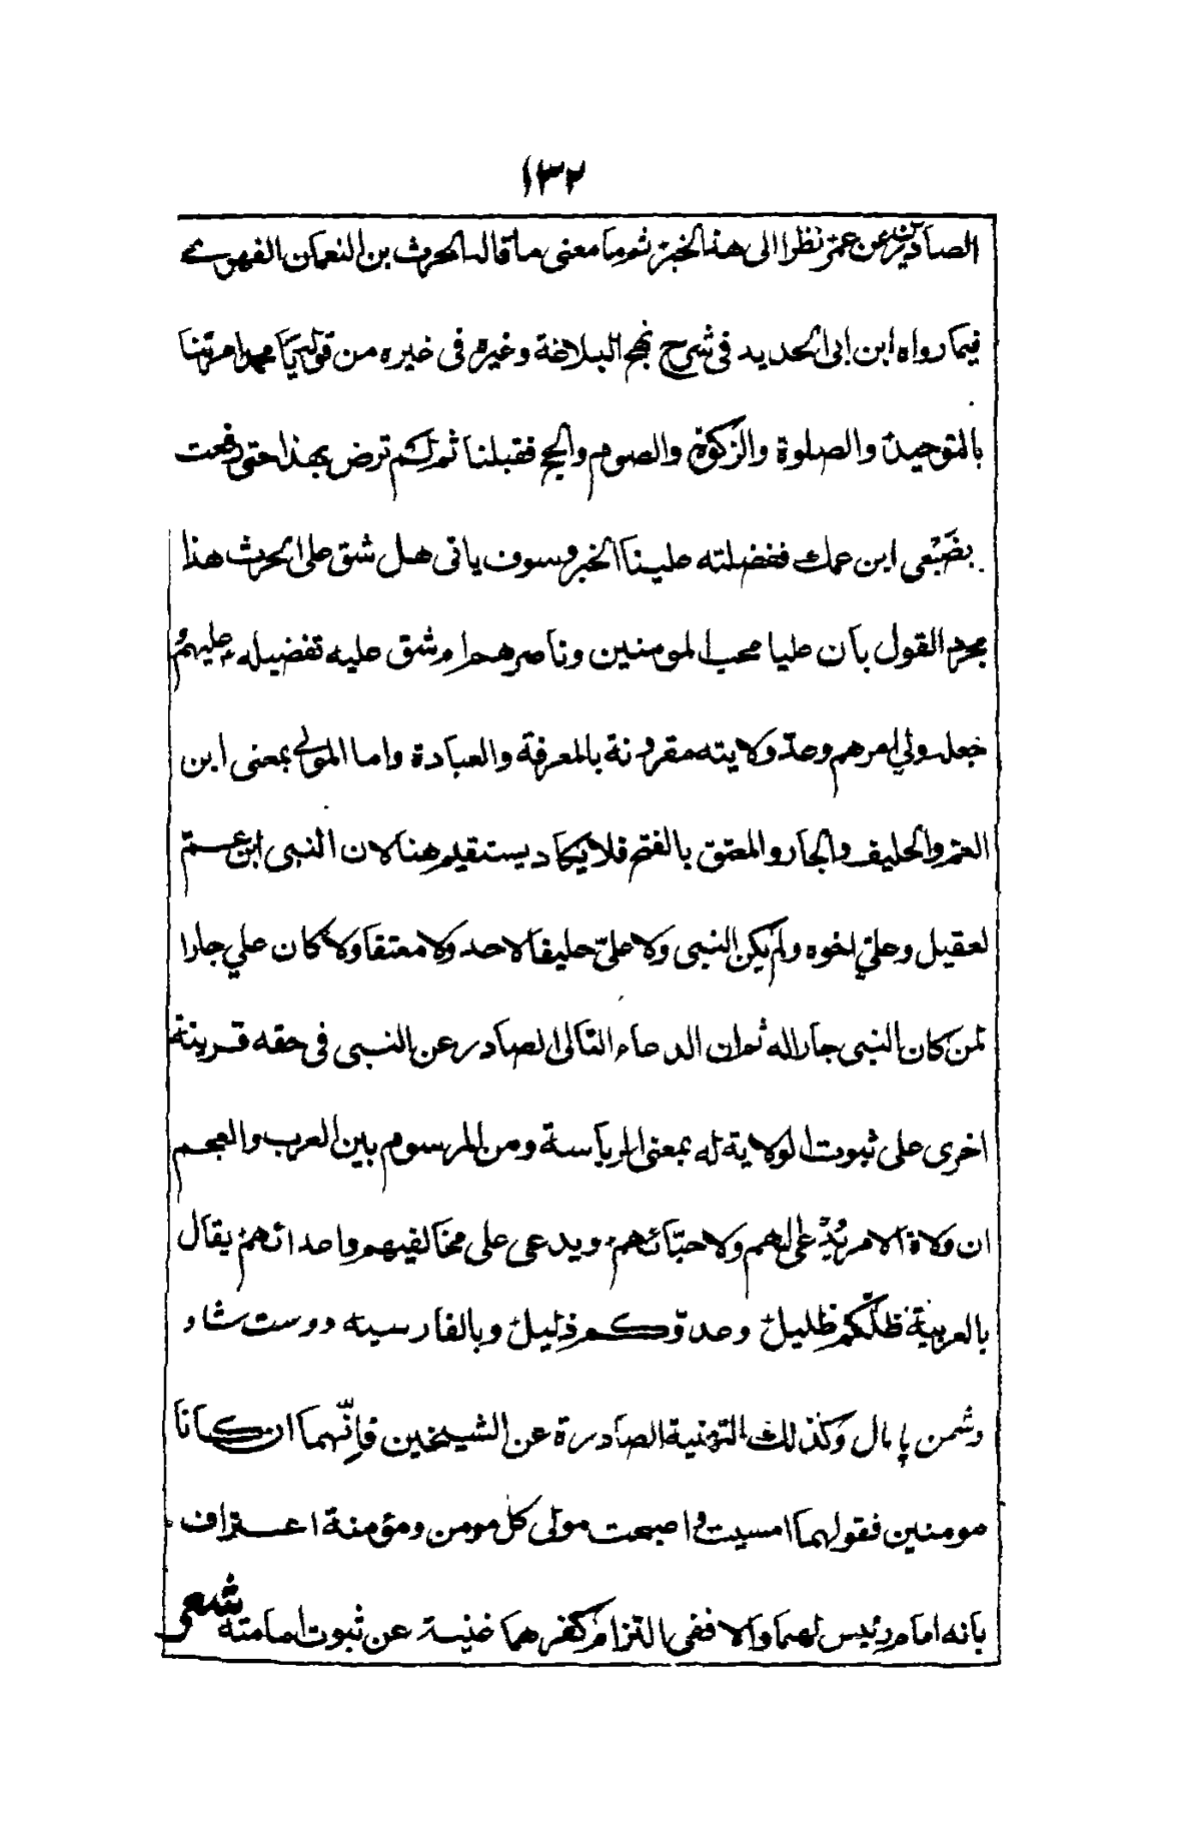 ١٣٢
الصادرين عن عمر نظرا الى هذا الخبر ثم ما معنى ما قاله الحرث بن النعمان الفهرى
فيما رواه ابن ابى الحديد فى شرح نهج البلاغة وغيره فى غيره من قوله يا محمد امرتنا
بالتوحيد والصلوة والزكوة والصوم والحج فقبلنا ثم لم ترض بهذا حتى رفعت
بضَبْعى ابن عمك ففضلته علينا الخبر وسوف ياتى هل شق على الحرث هذا
مجرد القول بان عليا محب المومنين وناصرهم ام شق عليه تفضيله عليهم و
جعله ولي امرهم وعدّ ولايته مقرونة بالمعرفة والعبادة واما المولى بمعنى ابن
العم والحليف والجار والمعتق بالفتح فلا يكاد يستقيم هنا لان النبى ابن عم
لعقيل وعلي اخوه ولم يكن النبى ولا علىّ حليفا لاحد ولا معتقا ولا كان علي جارا
لمن كان النبى جارا له ثم ان الدعاء التالى الصادر عن النبى فى حقه قرينة
اخرى على ثبوت الولاية له بمعنى الرياسة ومن المرسوم بين العرب والعجم
ان ولاة الامر يُدْعى لهم ولاحبّائهم ويدعى على مخالفيهم واعدائهم يقال
بالعربية ظلّكم ظليل وعدوّكم ذليل وبالفارسيه دوست شاد
دشمن پا مال وكذلك التهنية الصادرة عن الشيخين فإنّهما ان كانا
مومنين فقولهما امسيت واصبحت مولى كل مومن ومؤمنة اعتراف
بانه امام رئيس لهما والا ففى التزام كفرهما غنية عن ثبوت امامته شعر